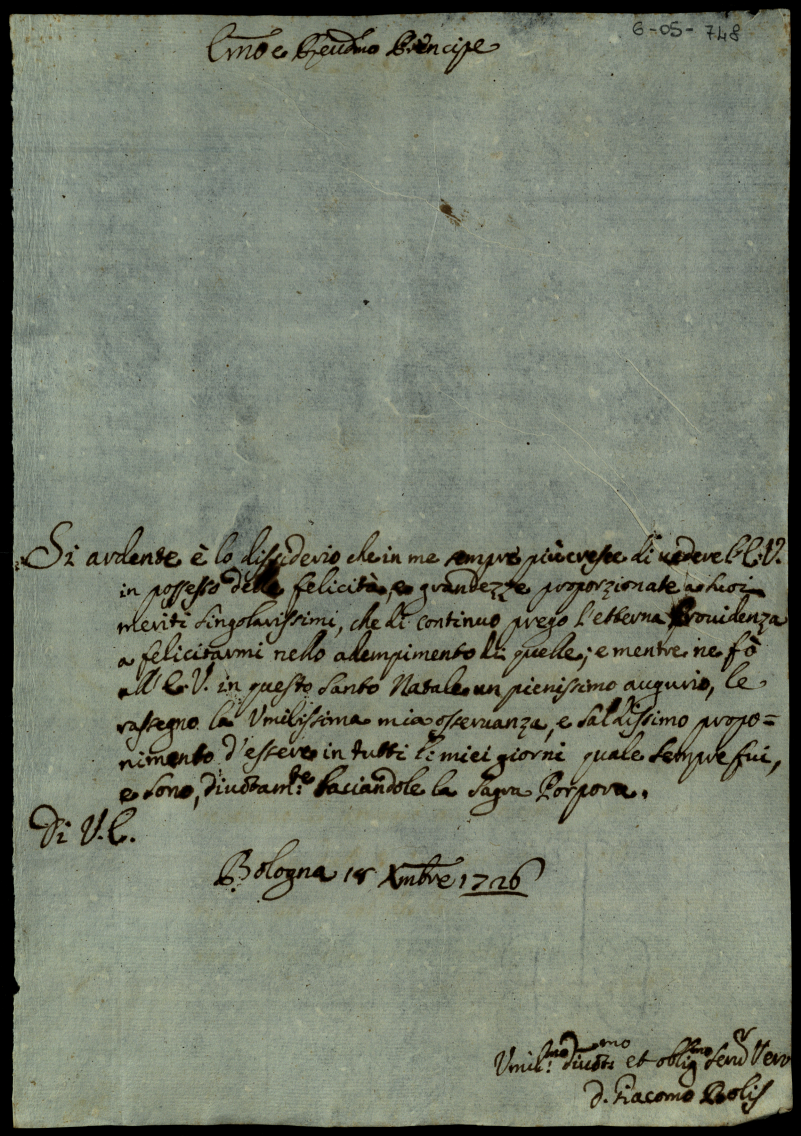 6-05-748
Emo e Revdmo Principe
Si ardente è lo dissiderio che in me sempre più cresce di vedere l'E.V.
in possesso delle felicità, e grandezze proporzionate a suoi
meriti singolarissimi, che di continuo prego l'etterna Providenza
a felicitarmi nello adempimento di quelle; e mentre ne fò
all'E.V. in questo Santo Natale un pienissimo augurio, le
rassegno la Umilissima mia osservanza, e saldissimo propo=
nimento d'essere in tutti li miei giorni quale sempre fui,
e sono, divotamte baciandole la Sagra Porpora.
Di V.E.
Bologna 18 Xmbre 1726
Umilmo divotmo et obligmo Servr Vero
D. Giacomo